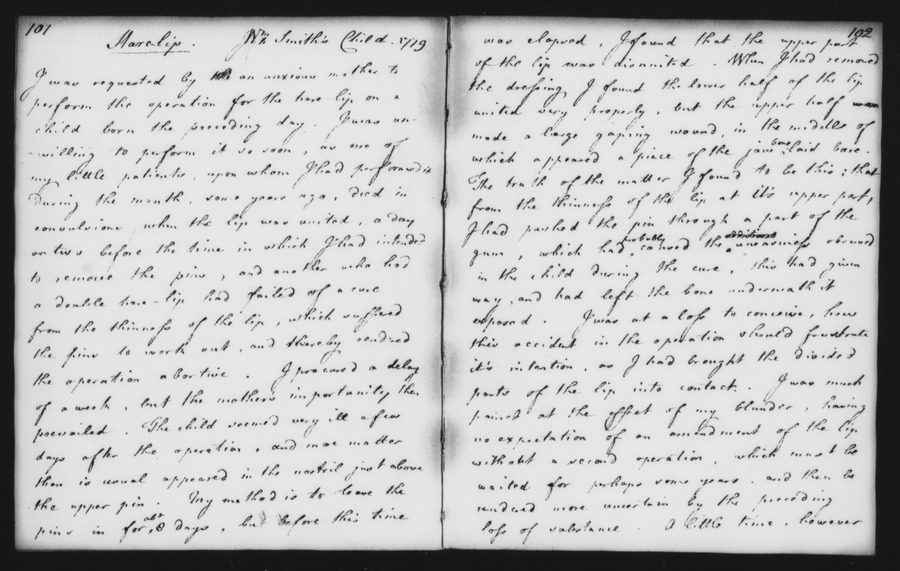 101
Harelip. Wm Smith's Child. 1779
I was requested by an anxious mother to
perform the operation for the hare lip on a
child born the preceding day. I was un-
-willing to perform it so soon, as one of
my little patients, upon whom I had performed it
During the month, some years ago, died in
convulsions, when the lip was united, a day
or two before the time in which I had intended
to remove the pins, and another who had
a double hare-lip had failed of a cure
from the thinness of the lip, which suffered
the pins to work out, and thereby rendered
the operation abortive. I procured a delay
of a week, but the mothers importunity then
prevailed. The child seemed very ill a few
days after the operation, and more matter
than is usual appeared in the nostril just above
the upper pin. My method is to leave the
pins in for abt 8 days, but before this time
102
was elapsed, I found that the upper part
of the lip was disunited. When I had removed
the dressing I found the lower half of the lip
united very properly, but the upper half
made a large gaping wound, in the middle of
which appeared a piece of the jaw bone laid bare.
The truth of the matter I found to be this; that
from the thinness of the lip at its upper part,
I had pushed the pin through a part of the
gum, which had probably caused the additional uneasiness observed
in the child during the cure, this had given
way, and had left the bone underneath it
exposed. I was at a loss to conceive, how
this accident in the operation should frustrate
it's intention, as I had brought the divided
parts of the lip into contact. I was much
pained at the effect of my blunder, having
no expectation of an amendment of the lip
without a second operation, which must be
waited for perhaps some years and then be
rendered more uncertain by the preceding
loss of substance. A little time, however